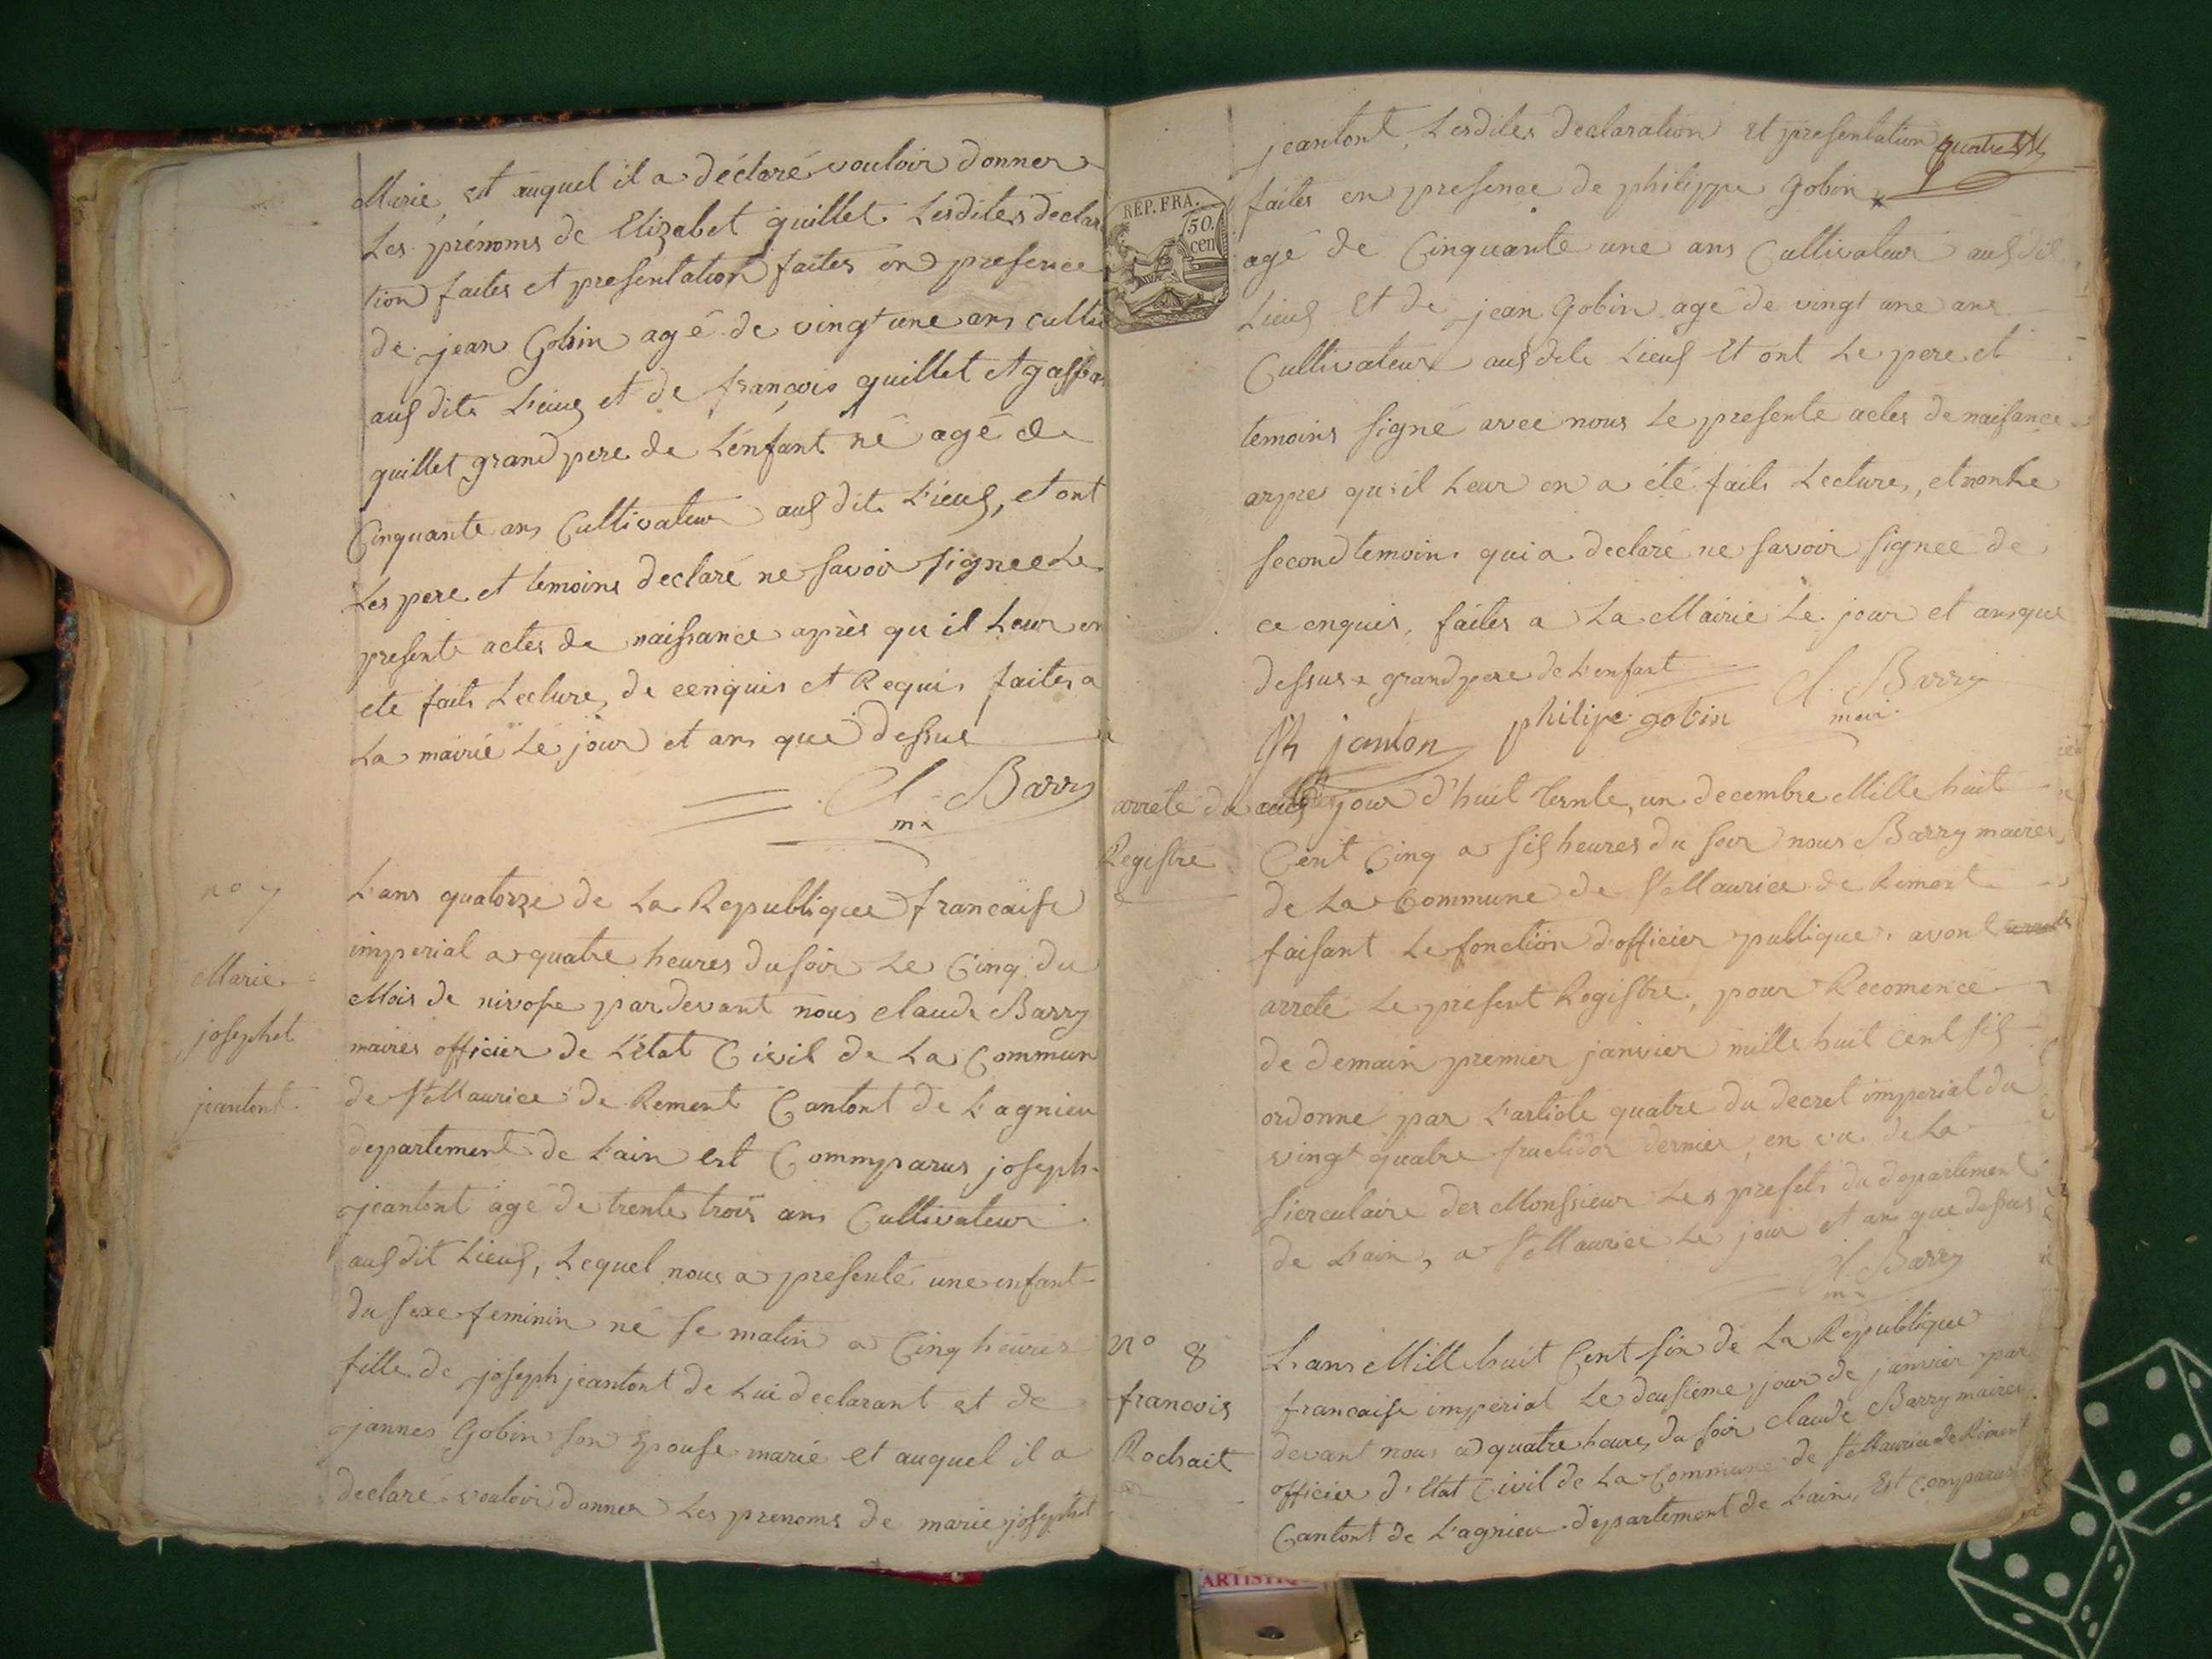 Marie, est auquel il a déclaré vouloir donner
Les prénoms de Elizabet guillet. Lesdites declar
tion faites et presentation faites en presence
de jean Gobin agé de vingt une ans culti
aus dite Lieus et de françois guillet et gaspa
guillet grand pere de L'enfant né agé de
Cinquante ans Cultivateur aus dit Lieus, et ont
Les pere et temoins declaré ne savoir signee Le
presente actes de naissance après qu'il Leur en
ete faits Lecture, de cenquis et Requis faites a
La mairie Le jour et ans que dessus
Cl. Barry
mr
no 7
Marie
josephet
jeantont
L'ans quatorze de La Republiques francaise
imperial a quatre heures du soir Le Cinq du
Mois de nivose pardevant nous claude Barry
maires officier de L'état Civil de La Commun
de St Maurice de Rement Cantont de Lagnieu
departement de L'ain est Commparus joseph
jeantont agé de trente trois ans Cultivateur
aus dit Lieus, Lequel nous a presenté une enfant
du sexe feminin né se matin a Cinq heures
fille de joseph jeantont de Lui declarant et de
jannes Gobin son Epouse marié et auquel il a
declaré vouloir donner Les prenoms de marie josephet
quatre
REP. FRA.
50.
cen
jeantont, Lesdites declaration et presentation
faites en presence de philippe gobin *
agé de Cinquante une ans Cultivateur aus dit
Lieus Et de jean Gobin agé de vingt une ans
Cultivateur aus dite Lieus Et ont Le pere et
temoins signé avec nous Le presente actes de naisance
arpres qu'il Leur en a été faits Lecture, et non Le
second temoin qui a declaré ne savoir signeé de
ce enquis, faites a La Mairie Le jour et ans que
dessus * grand pere de L'enfant
Cl. Barry
jh janton philipe gobin mair
arrete du
Registre
jour d'huit trente un decembre Mille huit
Cent Cinq a sis heures du soir nous Barry maires
de La Commune de St Maurice de Riment
faisant Le fonction d'officier publique, avont
arrete Le present Registre, pour Recomencé
de demain premier janvier mille huit Cent sis
ordonne par L'article quatre du decret imperial du
vingt quatre fructidor dernier, en vu de La
sierculaire des Monssieur Les prefets du departement
de L'ain, a St Maurice Le jour et ans que dessus
Cl. Barry
mr
No 8
francois
Rochait
L'ans Mille huit Cent six de La Republique
francaise imperial Le deusieme jour de janvier par
devant nous a quatre heures du soir claude Barry maires
officier d'Etat Civil de La Commune de St Maurice de Riment
Cantont de Lagnieu departement de L'ain, Est Comparus
ARTISTIQ